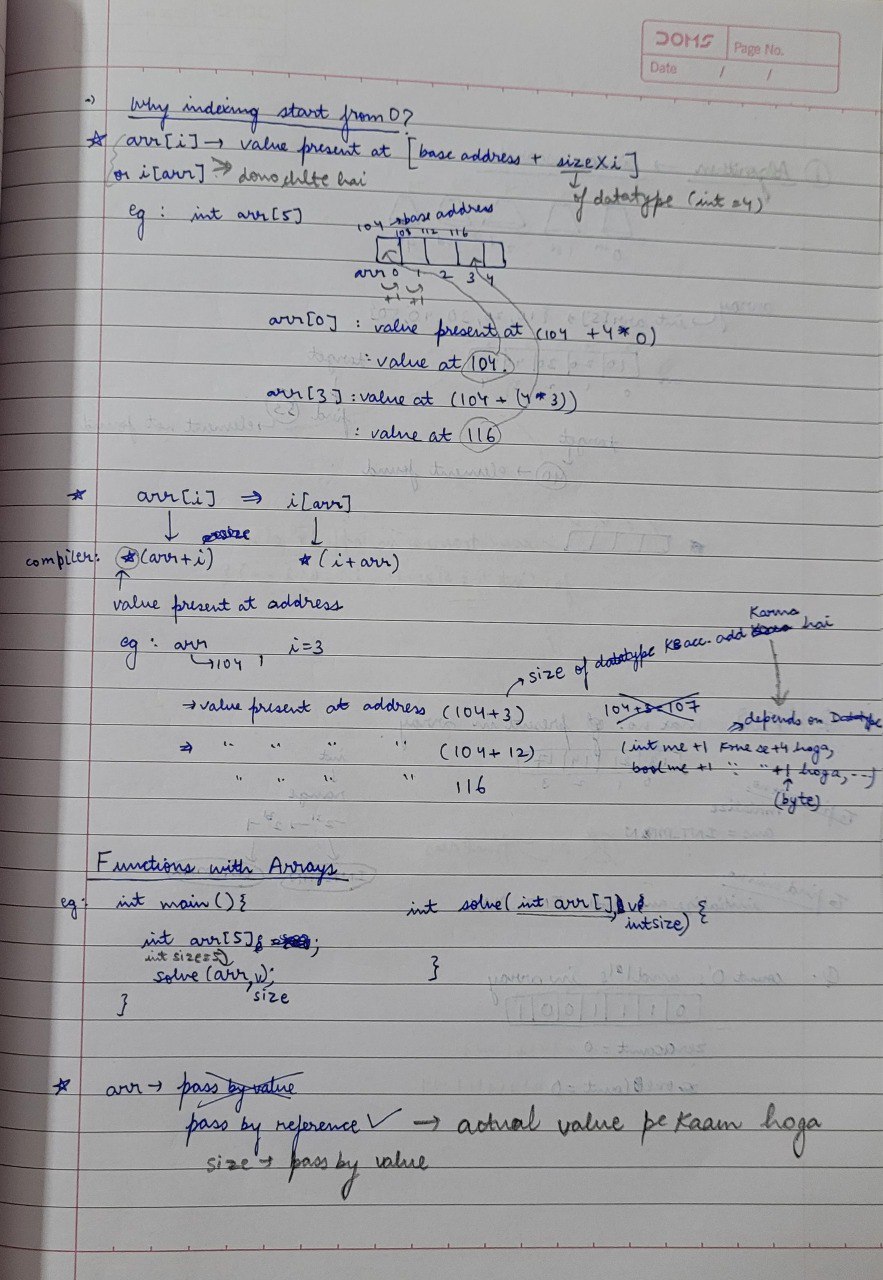 DOMS
Page No.
Date / /
→ Why indexing start from 0?
☆ arr[i] → value present at [base address + size X i]
or i[arr] ⇒ dono chlte hai
of datatype (int = 4)
eg : int arr[5]
104 → base address
108 112 116
arr 0 1 2 3 4
+1 +1
arr[0] : value present at (104 + 4 * 0)
: value at 104.
arr[3] : value at (104 + (4 * 3))
: value at 116
☆ arr[i] ⇒ i[arr]
compiler: *(arr+i) *(i+arr)
value present at address
eg : arr , i=3
104
→ size of datatype K acc. add Karna hai
→ value present at address (104+3) 104+3=107
→ depends on Datatype
⇒ " " " " (104+12)
(int me +1 Krne se +4 hoga,
bool me +1 " " +1 hoga, ...)
" " " " 116
(byte)
Functions with Arrays
eg: int main () { int solve( int arr[], int size) {
int arr[5];
int size=5;
solve (arr, size);
} }
☆ arr → pass by value
pass by reference ✓ → actual value pe Kaam hoga
size → pass by value